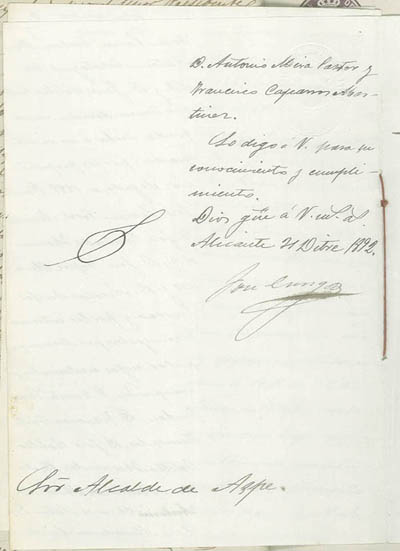 D. Antonio Mira Pastor y
Francisco Caparros Mar-
tinez.
Lo digo á V. para su
conocimiento y cumpli-
miento.
Dios gue á V. ms. as.
Alicante 21 Dbre 1892.
Sor Alcalde de Aspe.